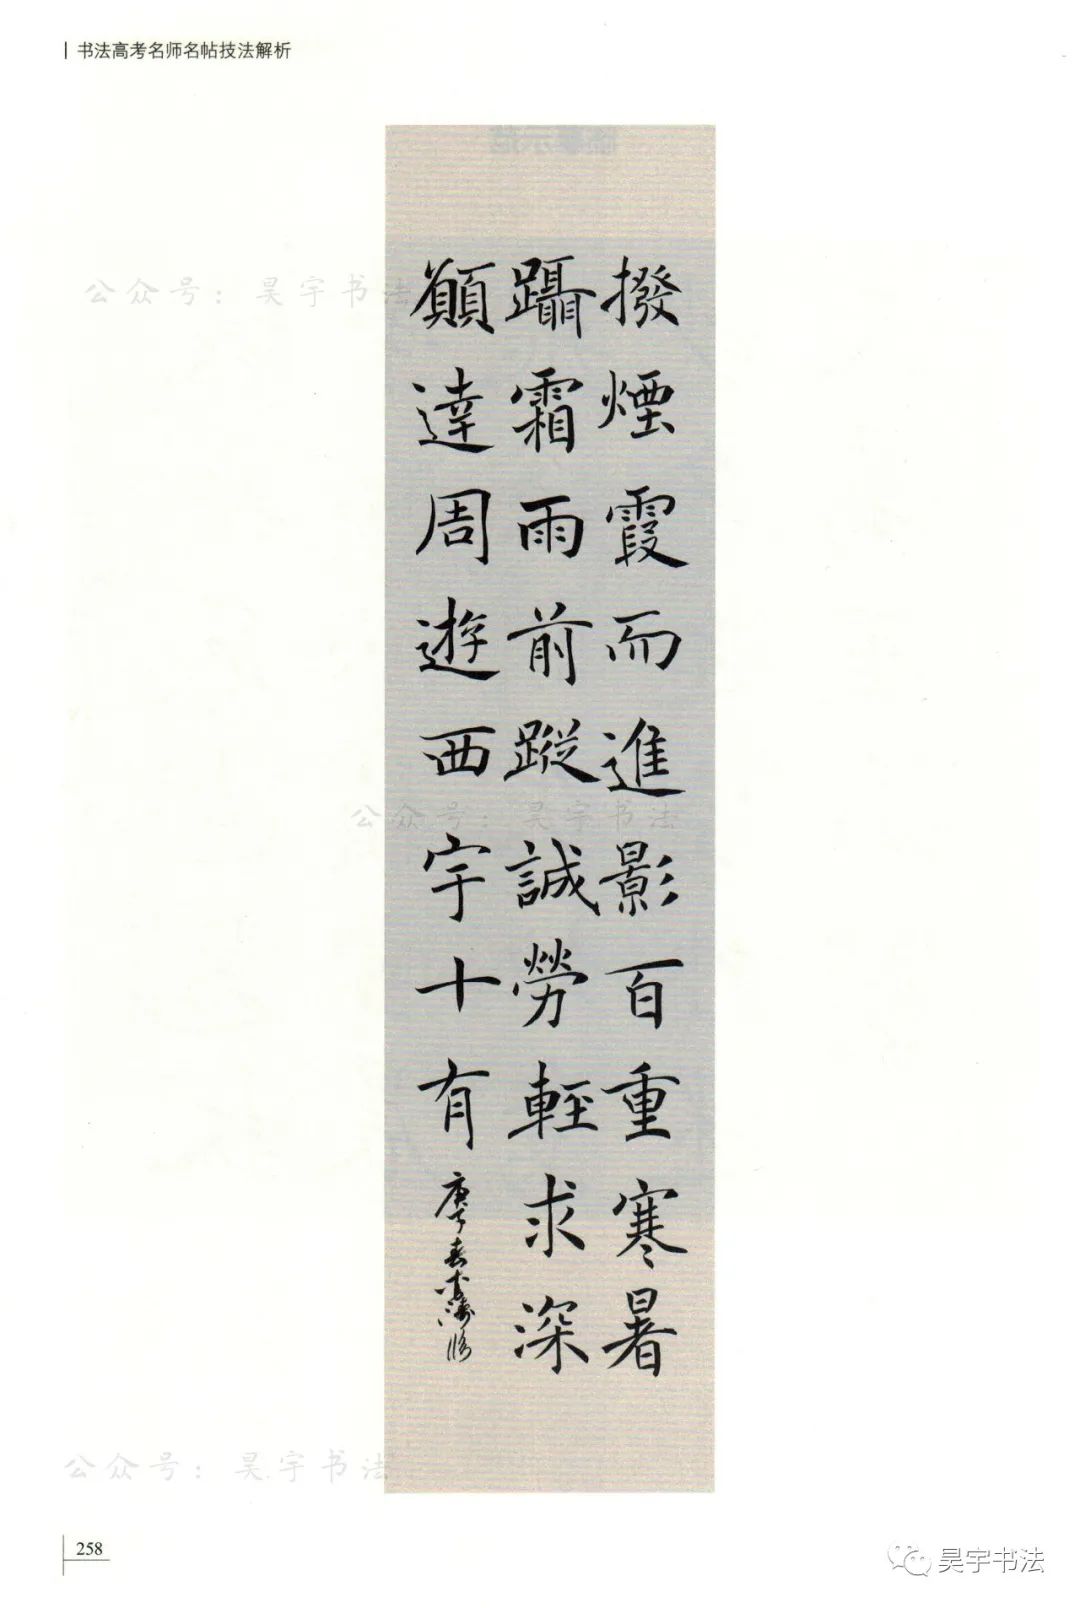 书法高考名师名帖技法解析
撥煙霞而進影百重寒暑
躡霜雨前蹤誠勞輕求深
願達周遊西宇十有
庚子春 臨
公众号：昊宇书法
公众号：昊宇书法
公众号：昊宇书法
258
昊宇书法